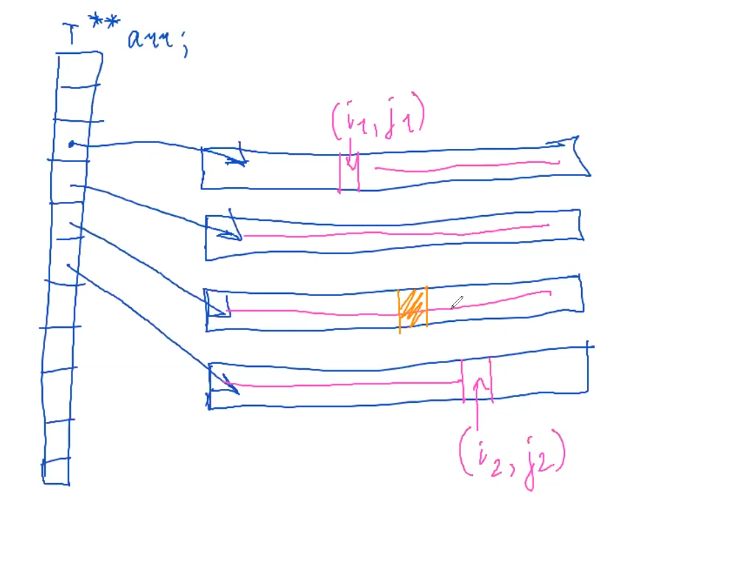 T ** arr;
(i1, j1)
(i2, j2)